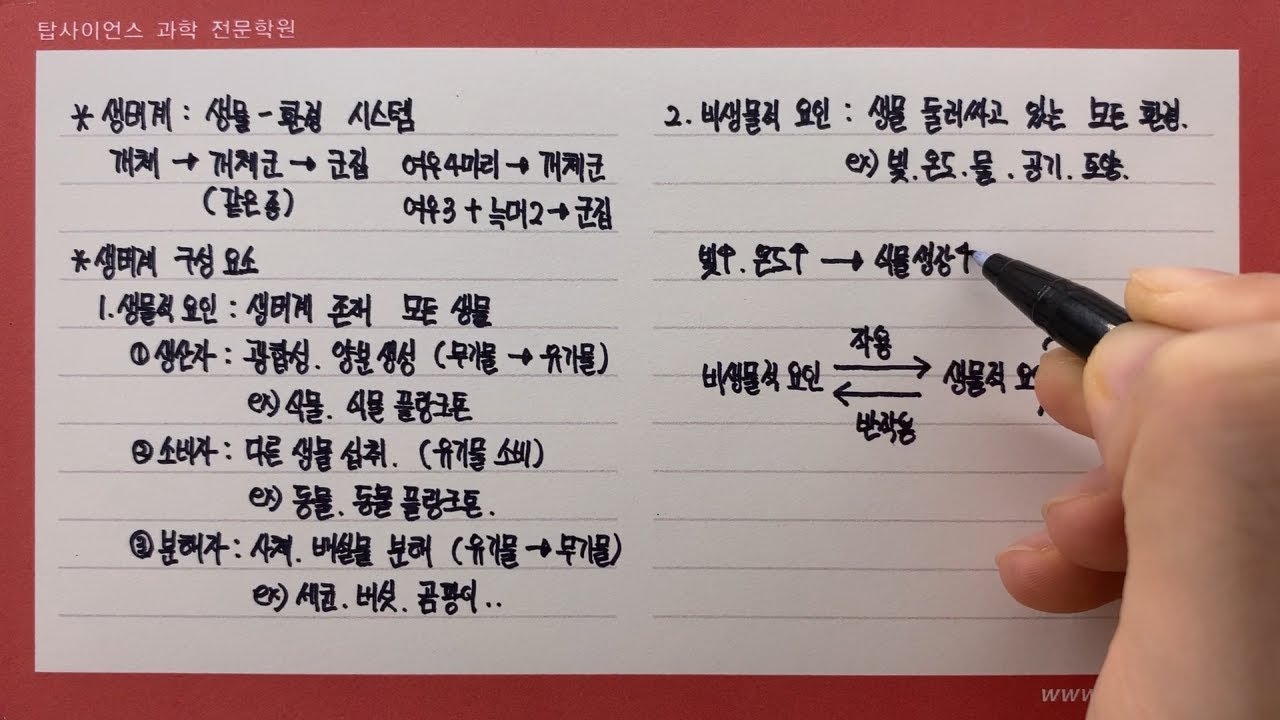 탑사이언스 과학 전문학원
* 생태계 : 생물 - 환경 시스템
개체 → 개체군 → 군집
(같은 종)
여우4마리 → 개체군
여우3 + 늑대2 → 군집
* 생태계 구성 요소
1. 생물적 요인 : 생태계 존재 모든 생물
① 생산자 : 광합성. 양분 생성 (무기물 → 유기물)
ex) 식물. 식물 플랑크톤
② 소비자 : 다른 생물 섭취. (유기물 소비)
ex) 동물. 동물 플랑크톤.
③ 분해자 : 사체. 배설물 분해 (유기물 → 무기물)
ex) 세균. 버섯. 곰팡이..
2. 비생물적 요인 : 생물 둘러싸고 있는 모든 환경.
ex) 빛. 온도. 물. 공기. 토양.
빛↑. 온도↑ → 식물 생장↑
작용
비생물적 요인 ⇄ 생물적
반작용
www.